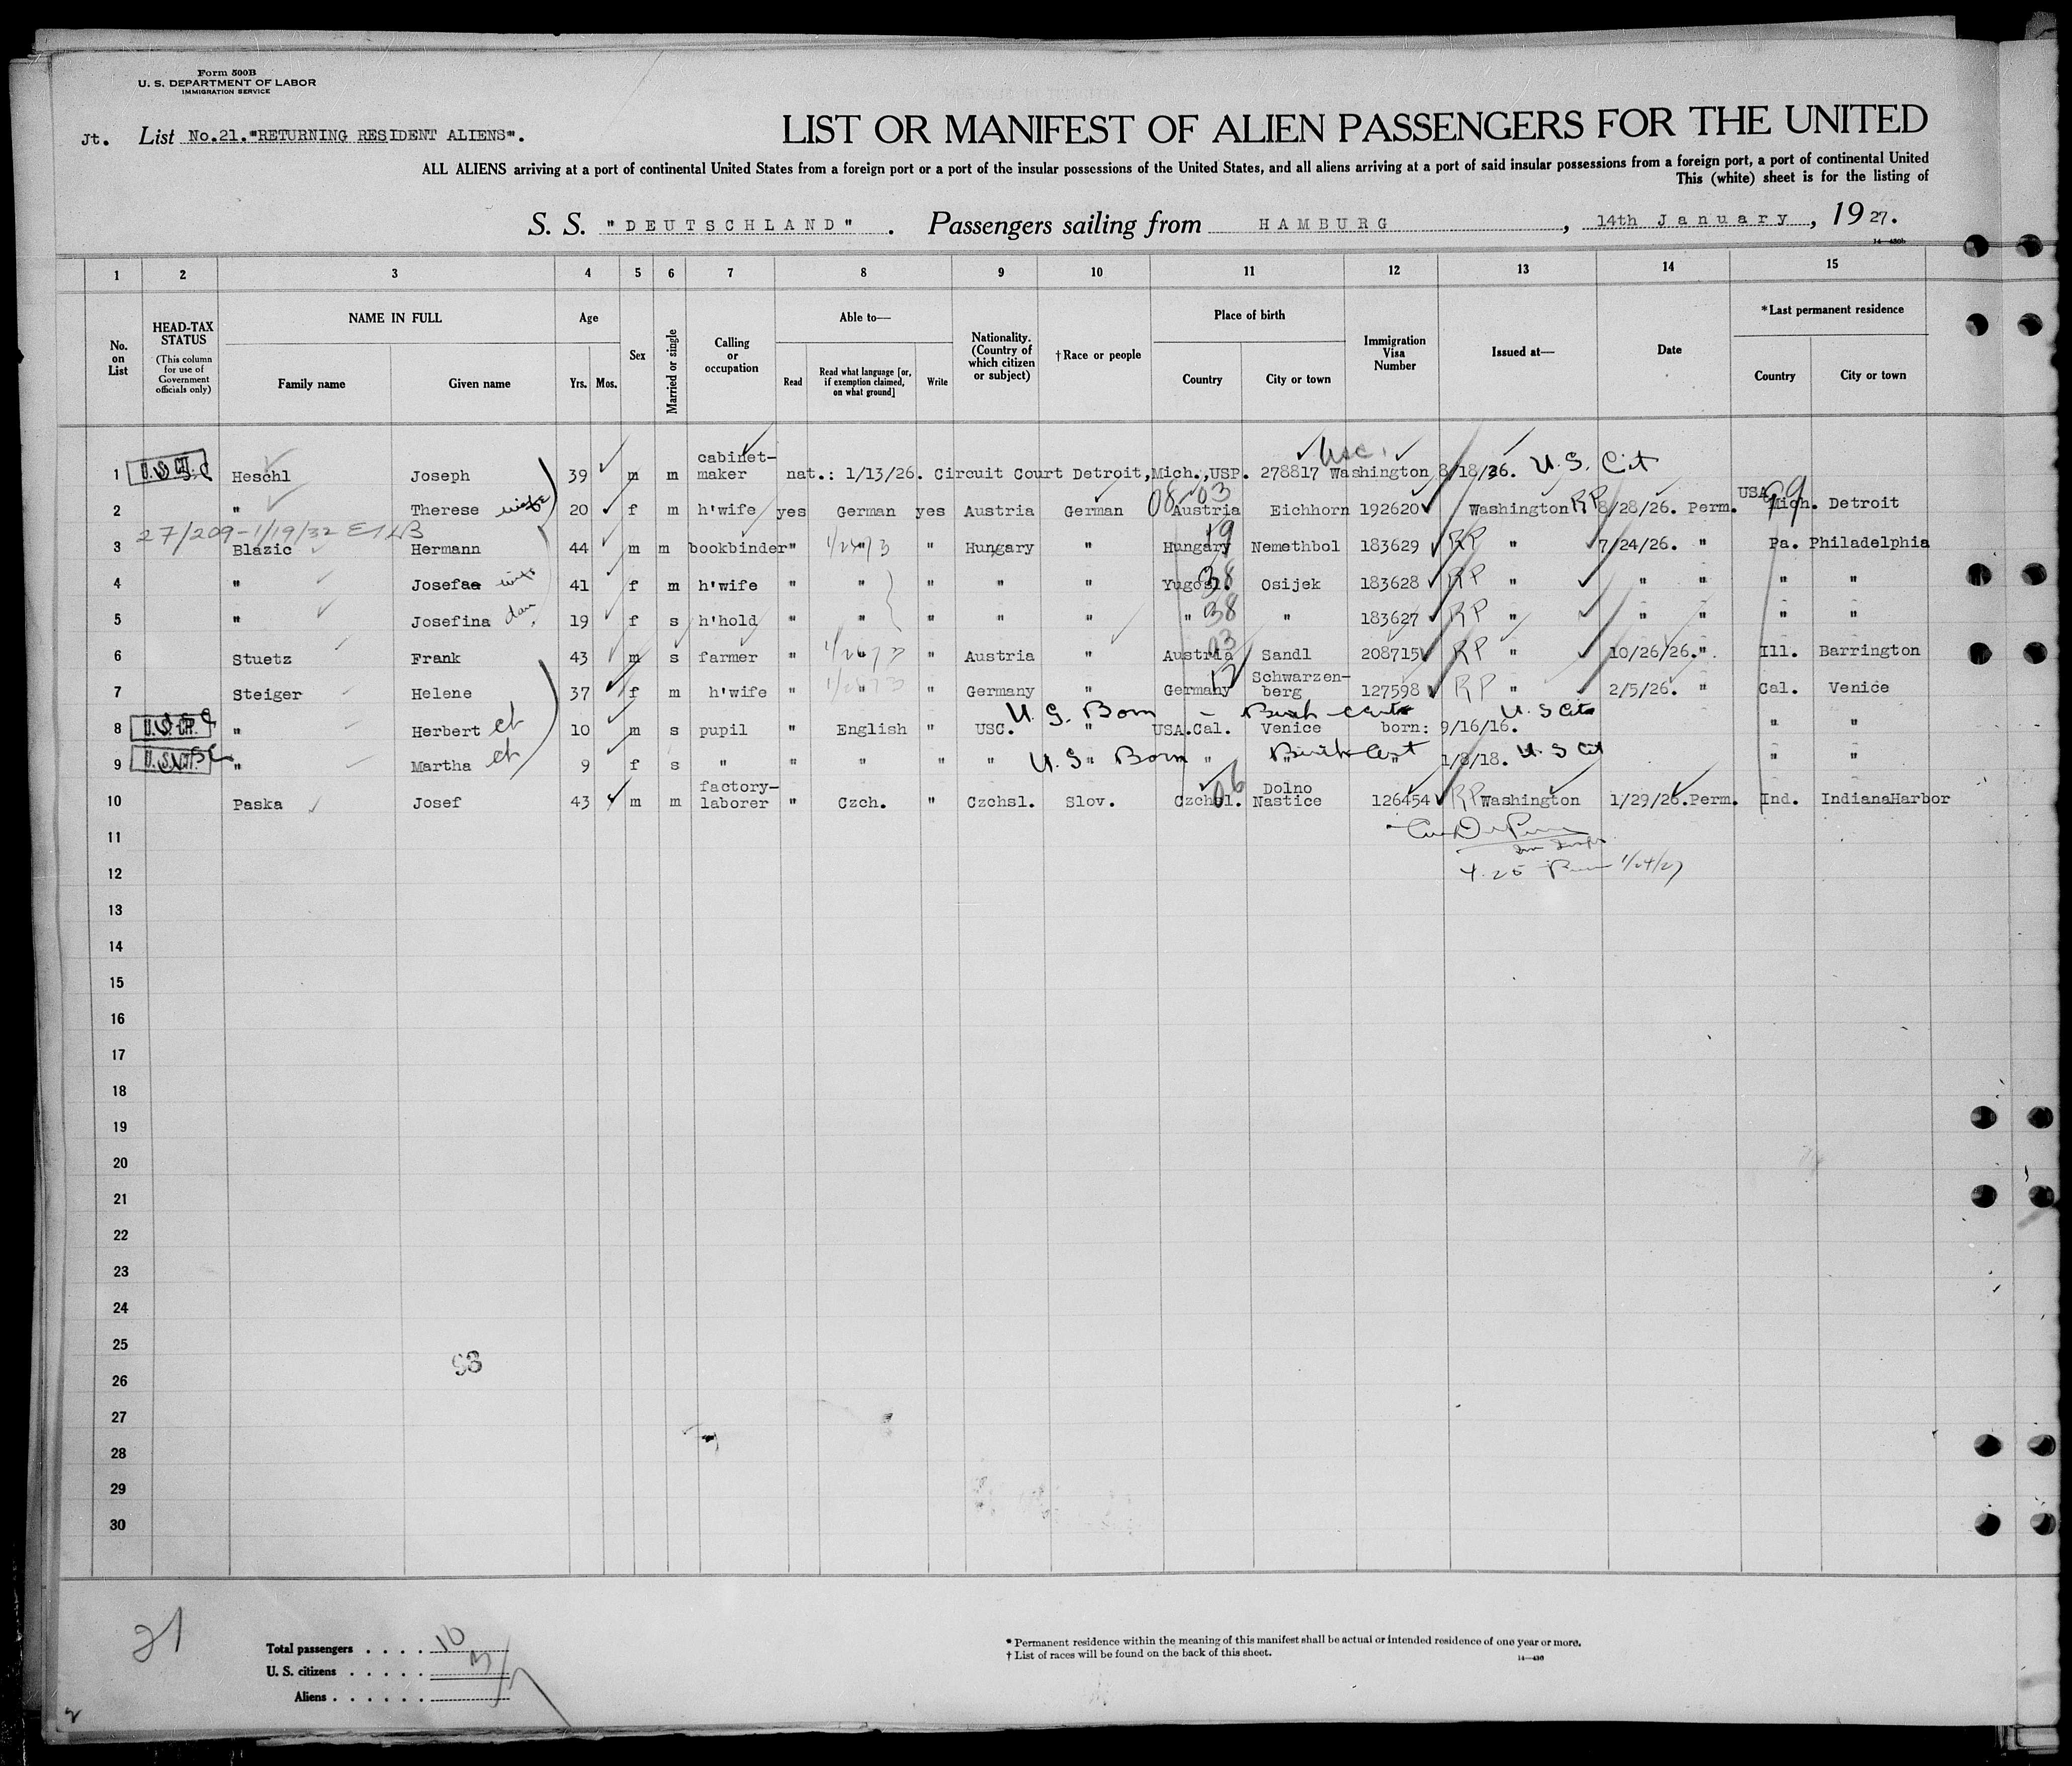 Form 500B
U. S. DEPARTMENT OF LABOR
IMMIGRATION SERVICE
Jt. List No.21."RETURNING RESIDENT ALIENS".
LIST OR MANIFEST OF ALIEN PASSENGERS FOR THE UNITED
ALL ALIENS arriving at a port of continental United States from a foreign port or a port of the insular possessions of the United States, and all aliens arriving at a port of said insular possessions from a foreign port, a port of continental United
This (white) sheet is for the listing of
S. S. "DEUTSCHLAND". Passengers sailing from HAMBURG, 14th January, 1927.
1 2 3 4 5 6 7 8 9 10 11 12 13 14 15
No. on List
HEAD-TAX STATUS (This column for use of Government officials only)
NAME IN FULL
Family name Given name
Age
Yrs. Mos.
Sex
Married or single
Calling or occupation
Able to—
Read Read what language [or, if exemption claimed, on what ground] Write
Nationality. (Country of which citizen or subject)
†Race or people
Place of birth
Country City or town
Immigration Visa Number
Issued at—
Date
*Last permanent residence
Country City or town
1 Heschl Joseph 39 m m cabinet-maker nat.: 1/13/26. Circuit Court Detroit,Mich.,USP. 278817 Washington 8/18/26. U.S. Cit
2 " Therese wife 20 f m h'wife yes German yes Austria German 08 03 Austria Eichhorn 192620 Washington RP 8/28/26. Perm. USA Mich. Detroit
27/209-1/19/32
3 Blazic Hermann 44 m m bookbinder " " " Hungary " Hungary 19 Nemethbol 183629 RP " 7/24/26. " Pa. Philadelphia
4 " Josefa wife 41 f m h'wife " " " " " Yugosl. 38 Osijek 183628 RP " " " " "
5 " Josefina dau 19 f s h'hold " " " " " " 38 " 183627 RP " " " " "
6 Stuetz Frank 43 m s farmer " " " Austria " Austria 03 Sandl 208715 RP " 10/26/26. " Ill. Barrington
7 Steiger Helene 37 f m h'wife " " " Germany " Germany 12 Schwarzen-berg 127598 RP " 2/5/26. " Cal. Venice
U.S. Born - Birth Cert U S Cit
8 " Herbert ch 10 m s pupil " English " USC. " USA.Cal. Venice born: 9/16/16. " "
9 " Martha ch 9 f s " " " " " U.S. " Born " Birth Cert " 1/8/18. U.S Cit " "
10 Paska Josef 43 m m factory-laborer " Czch. " Czchsl. Slov. Czchsl. 06 Dolno Nastice 126454 RP Washington 1/29/26.Perm. Ind. IndianaHarbor
11
12 1/24/27
13
14
15
16
17
18
19
20
21
22
23
24
25
93
26
27
28
29
30
21
Total passengers . . . . 10
U. S. citizens . . . . . 3
Aliens . . . . . . 7
* Permanent residence within the meaning of this manifest shall be actual or intended residence of one year or more.
† List of races will be found on the back of this sheet.
14—430